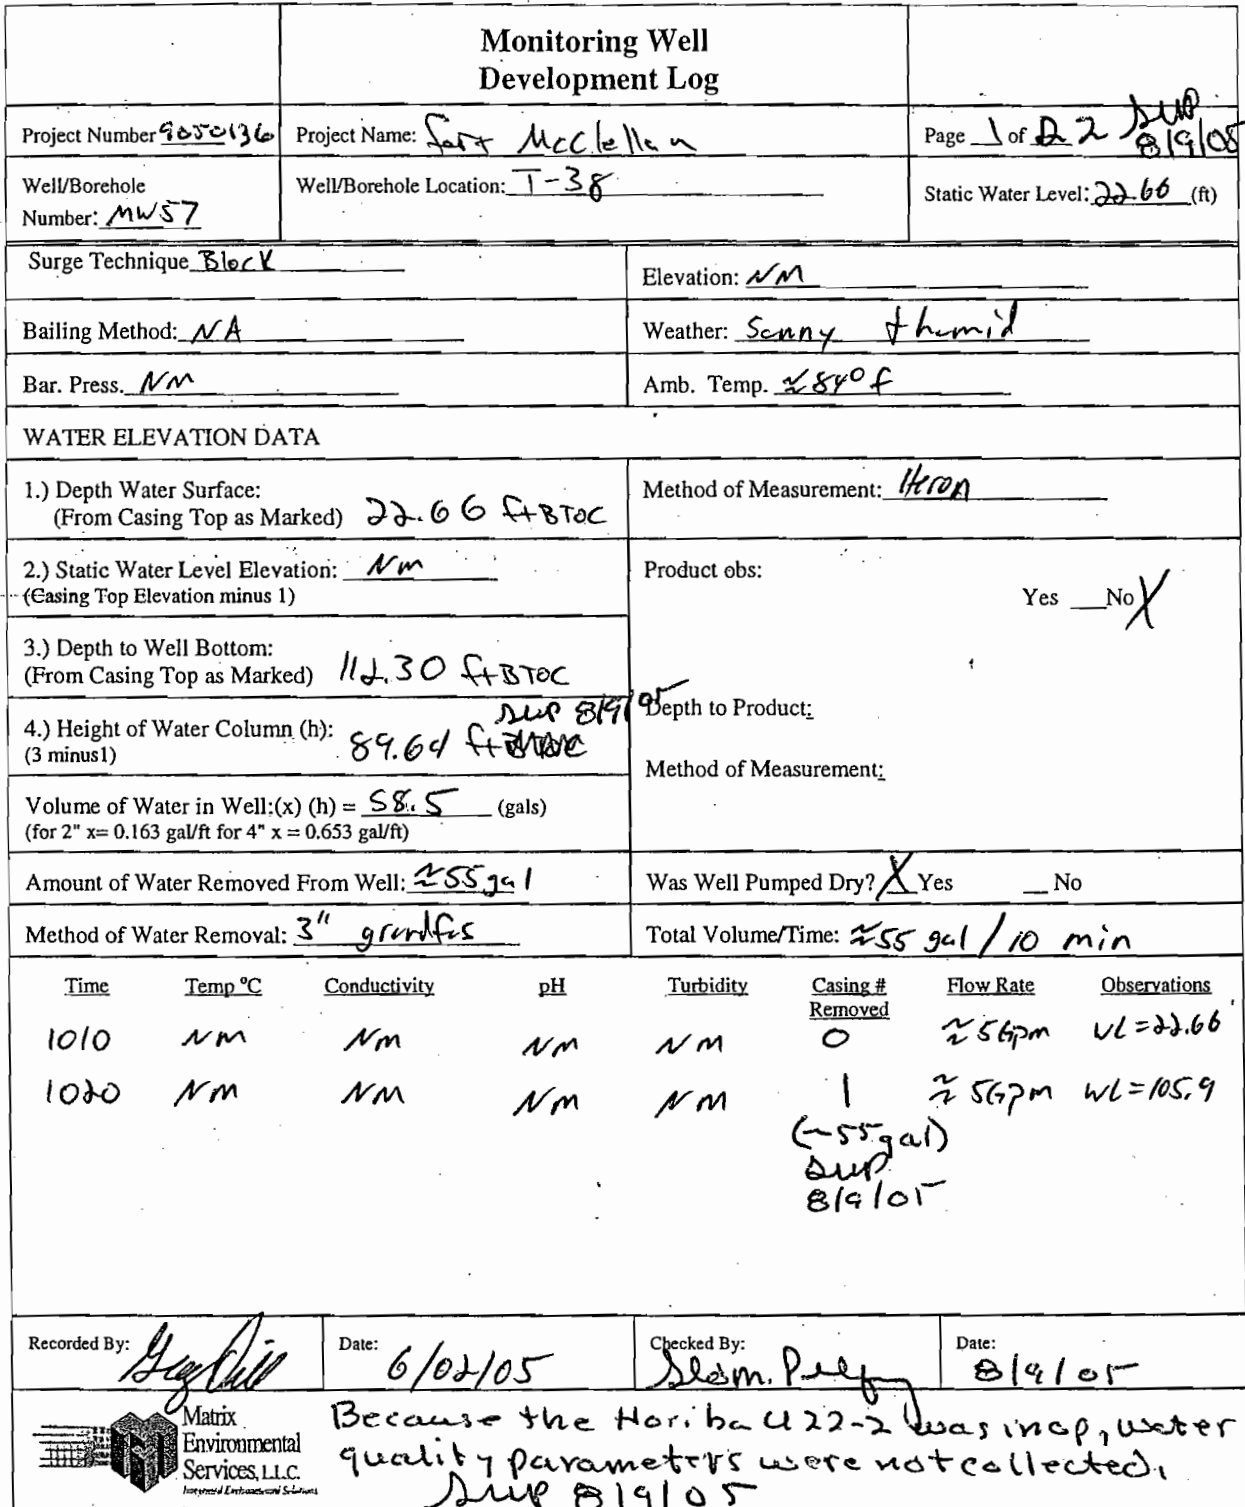 Monitoring Well
Development Log
Project Number 9050136
Project Name: Fort McClellan
Page 1 of 2
8/9/05
Well/Borehole
Number: MW57
Well/Borehole Location: T-38
Static Water Level: 22.66 (ft)
Surge Technique Block
Elevation: NM
Bailing Method: NA
Weather: Sunny + humid
Bar. Press. NM
Amb. Temp. ≈84° F
WATER ELEVATION DATA
1.) Depth Water Surface:
(From Casing Top as Marked) 22.66 ft BTOC
Method of Measurement: Heron
2.) Static Water Level Elevation: NM
(Casing Top Elevation minus 1)
Product obs:
Yes __No X
3.) Depth to Well Bottom:
(From Casing Top as Marked) 112.30 ft BTOC
4.) Height of Water Column (h): 89.64 ft
(3 minus1)
8/9/05
Depth to Product:
Method of Measurement:
Volume of Water in Well:(x) (h) = 58.5 (gals)
(for 2" x= 0.163 gal/ft for 4" x = 0.653 gal/ft)
Amount of Water Removed From Well: ≈55 gal
Was Well Pumped Dry? X Yes __ No
Method of Water Removal: 3" grundfos
Total Volume/Time: ≈55 gal / 10 min
Time Temp °C Conductivity pH Turbidity Casing # Removed Flow Rate Observations
1010 NM NM NM NM 0 ≈ 5Gpm WL=22.66
1020 NM NM NM NM 1 ≈ 5Gpm WL=105.9
(~55 gal)
8/9/05
Recorded By:
Date: 6/02/05
Checked By:
Date: 8/9/05
Matrix
Environmental
Services, L.L.C.
Integrated Environmental Solutions
Because the Horiba U22-2 was inop, water
quality parameters were not collected.
8/9/05